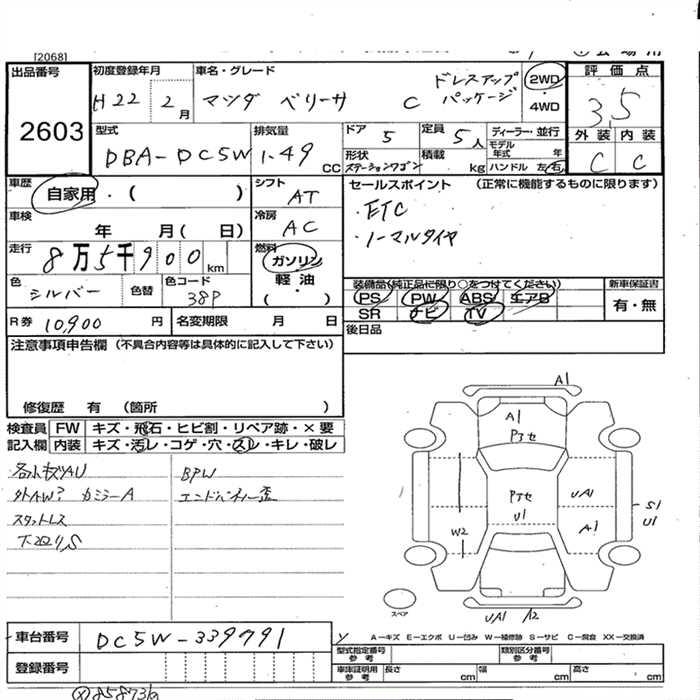 [2068]
出品番号 2603
初度登録年月 H22 2月
車名・グレード マツダ ベリーサ C ドレスアップパッケージ
2WD ・4WD
評価点 3.5
外装 内装
C C
型式 DBA-DC5W
排気量 1.49 CC
ドア 5
定員 5人
形状 ステーションワゴン
積載 kg
ディーラー・並行
モデル年式 年
ハンドル 左・右
車歴 自家用・( )
シフト AT
セールスポイント (正常に機能するものに限ります)
・ETC
・ノーマルタイヤ
車検 年 月( 日)
冷房 AC
走行 8万5千900km
燃料 ガソリン 軽油 ・( )
色 シルバー
色替
色コード 38P
装備品(純正品に限り○をつけてください)
PS PW ABS エアB
SR ナビ TV
新車保証書 有・無
R券 10,900 円
名変期限 月 日
後日品
注意事項申告欄(不具合内容等は具体的に記入して下さい)
修復歴 有(箇所 )
検査員記入欄
FW キズ・飛石・ヒビ割・リペア跡・×要
内装 キズ・汚レ・コゲ・穴・スレ・キレ・破レ
BPW
スタットレス
A1
A1
W2
U1
UA1
A1
S1
U1
UA1 A2
スペア
A-キズ E-エクボ U-凹み W-補修跡 S-サビ C-腐食 XX-交換済
車台番号 DC5W-339791
登録番号
型式指定番号 参考
類別区分番号 参考
車庫証明用 参考 長さ cm 幅 cm 高さ cm